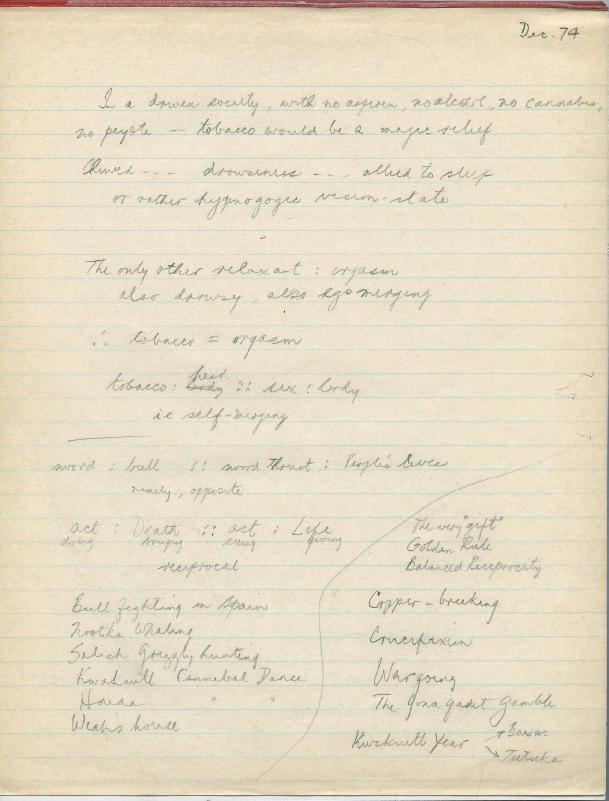 Dec. 74
In a driven society, with no aspirin, no alcohol, no cannabis,
no peyote -- tobacco would be a magic relief
Chewed --- drowsiness --- allied to sleep
or rather hypnogogic vision-state
-
The only other relaxant : orgasm
also drowsy, also Ego merging
∴ tobacco = orgasm
head
tobacco : body :: sex : body
ie self-merging
sword : bull :: sword thrust : People's Lives
namely, opposite
act : Death :: act : Life
doing bringing giving
reciprocal
Bull fighting in Spain
Nootka Whaling
Salish Grizzly hunting
Kwakiutl Cannibal Dance
Haida " "
Weah's house
The very "gift"
Golden Rule
Balanced Reciprocity
Copper-breaking
Crucifixion
Wargoing
The Gonagadet Gamble
Kwakiutl Year
Tsetseka